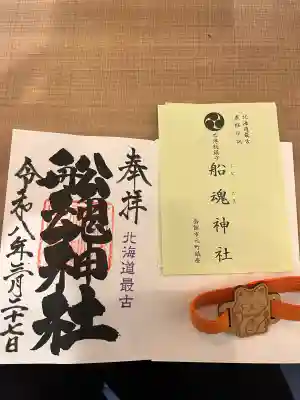 奉拝
北海道最古
船魂神社
令和八年三月二十七日
北海道最古
船魂神社
函館市元町鎮座